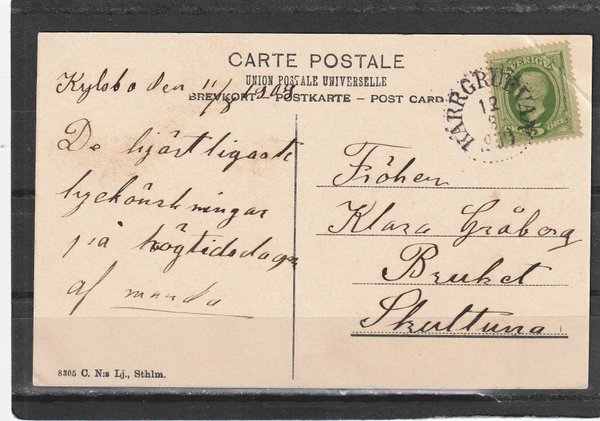 CARTE POSTALE
UNION POSTALE UNIVERSELLE
BREVKORT - POSTKARTE - POST CARD
SVERIGE
5 ÖRE
KÄRRGRUFVAN
12
8
Kylsbo den 11/8 1909
De hjärtligaste
lyckönskningar
på högtidsdagen
af
Fröken
Klara Gråberg
Bruket
Skultuna
8305 C. N:s Lj., Sthlm.